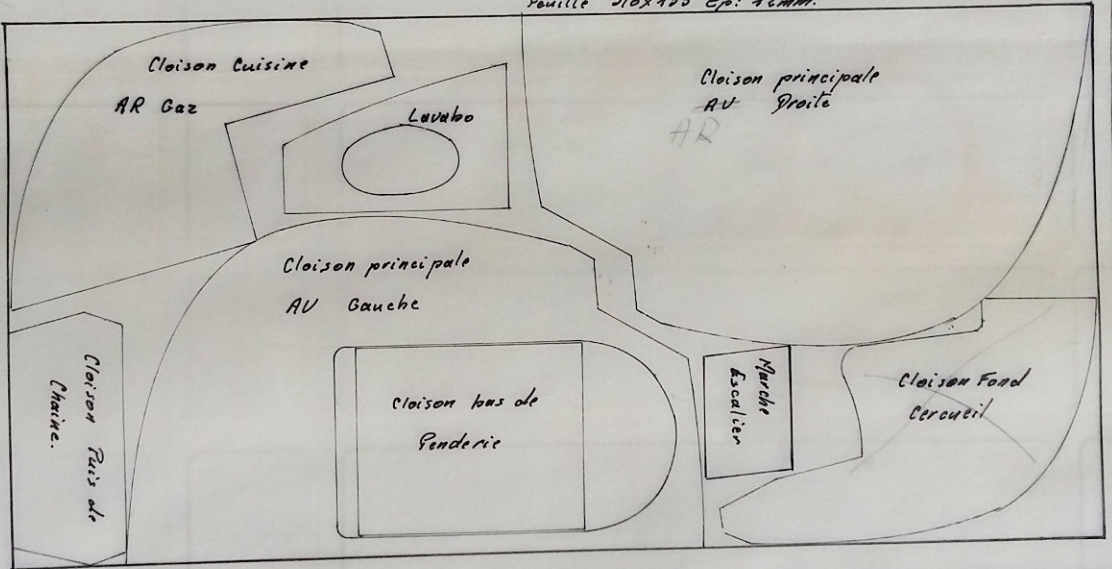 Cloison Cuisine
AR Gaz
Lavabo
Cloison principale
AV Droite
AR
Cloison principale
AV Gauche
Cloison Puis de
Chaine.
Cloison bas de
Penderie
Marche
Escalier
Cloison Fond
Cercueil